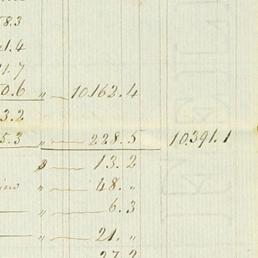 8.3
1.4
1.7
0.6 " 10.162.4
3.2
5.3 " 228.5 10.391.1
" 13.2
" 48. "
" 6.3
" 21. "
27.2